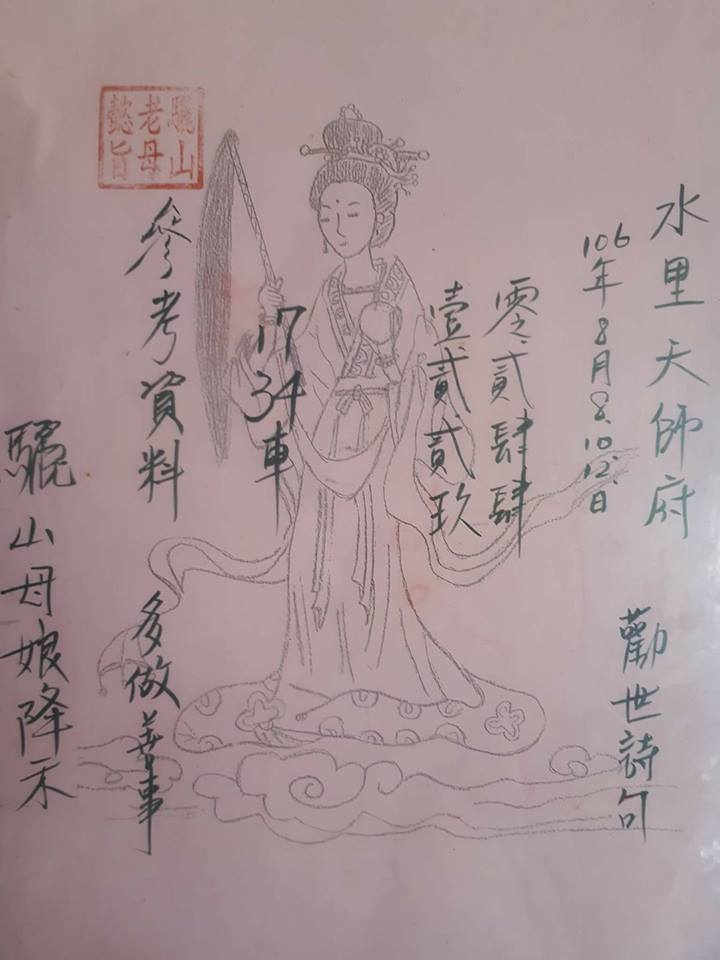 水里天師府
勸世詩句
106年8月8.10.12.日
零貳肆肆
壹貳貳玖
17 34車
參考資料
多做善事
驪山母娘降示
驪山
老母
懿旨